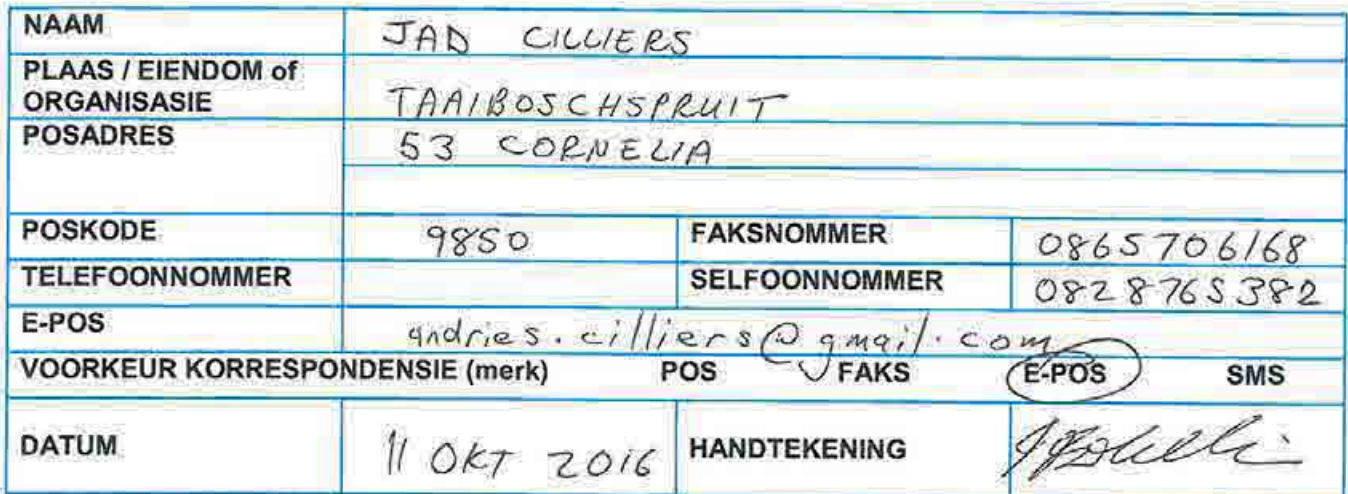 NAAM JAD CILLIERS
PLAAS / EIENDOM of
ORGANISASIE TAAIBOSCHSPRUIT
POSADRES 53 CORNELIA
POSKODE 9850 FAKSNOMMER 0865706168
TELEFOONNOMMER SELFOONNOMMER 0828765382
E-POS andries.cilliers@gmail.com
VOORKEUR KORRESPONDENSIE (merk) POS FAKS E-POS SMS
DATUM 11 OKT 2016 HANDTEKENING